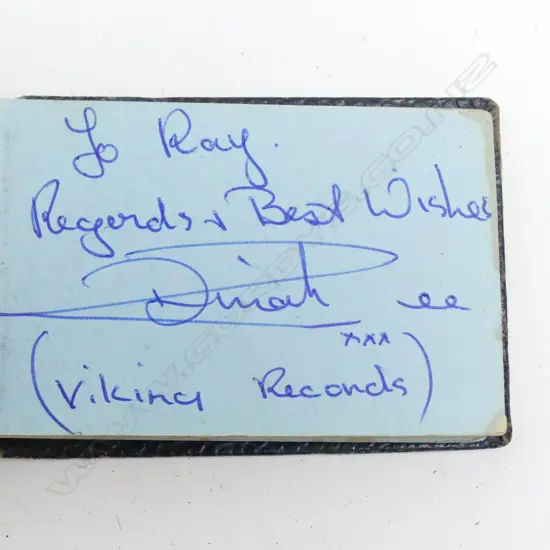 To Ray.
Regards + Best Wishes
Dinah Lee
xxx
(Viking Records)